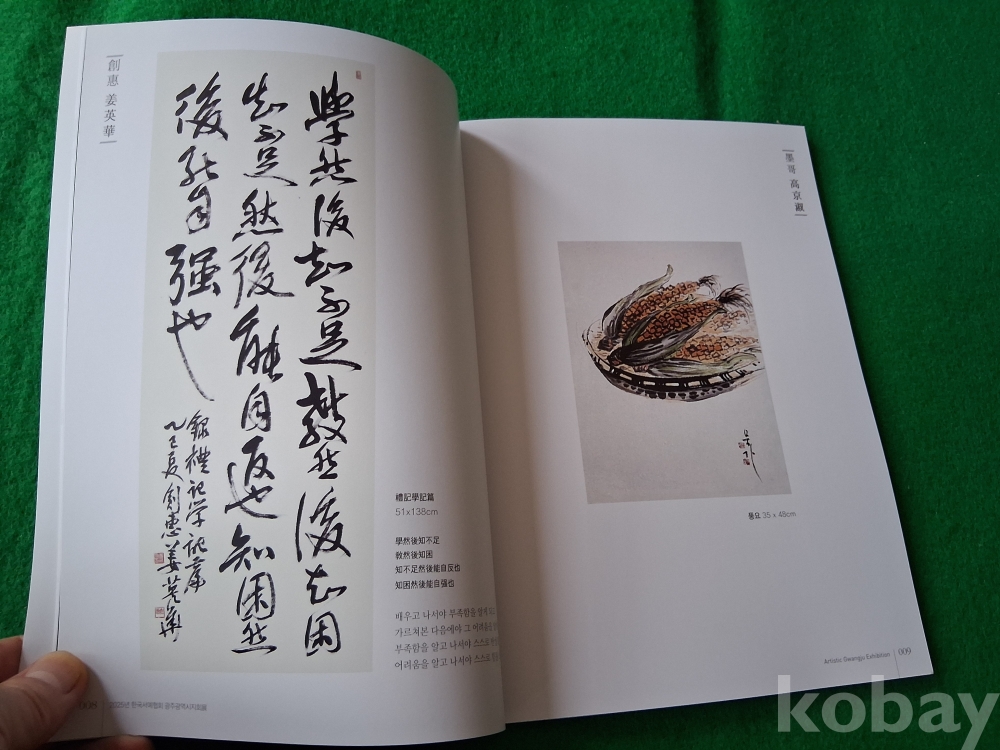 創惠 姜英華
學然後知不足敎然後知困
知不足然後能自返也知困然
後能自强也
錄禮記學記篇
乙巳夏 創惠 姜英華
禮記學記篇
51x138cm
學然後知不足
敎然後知困
知不足然後能自反也
知困然後能自强也
배우고 나서야 부족함을 알게 되고
가르쳐본 다음에야 그 어려움을
부족함을 알고 나서야 스스로
어려움을 알고 나서야 스스로
008 2025년 한국서예협회 광주광역시지회展
墨哥 高京
풍요 35 x 48cm
Artistic Gwangju Exhibition 009
kobay